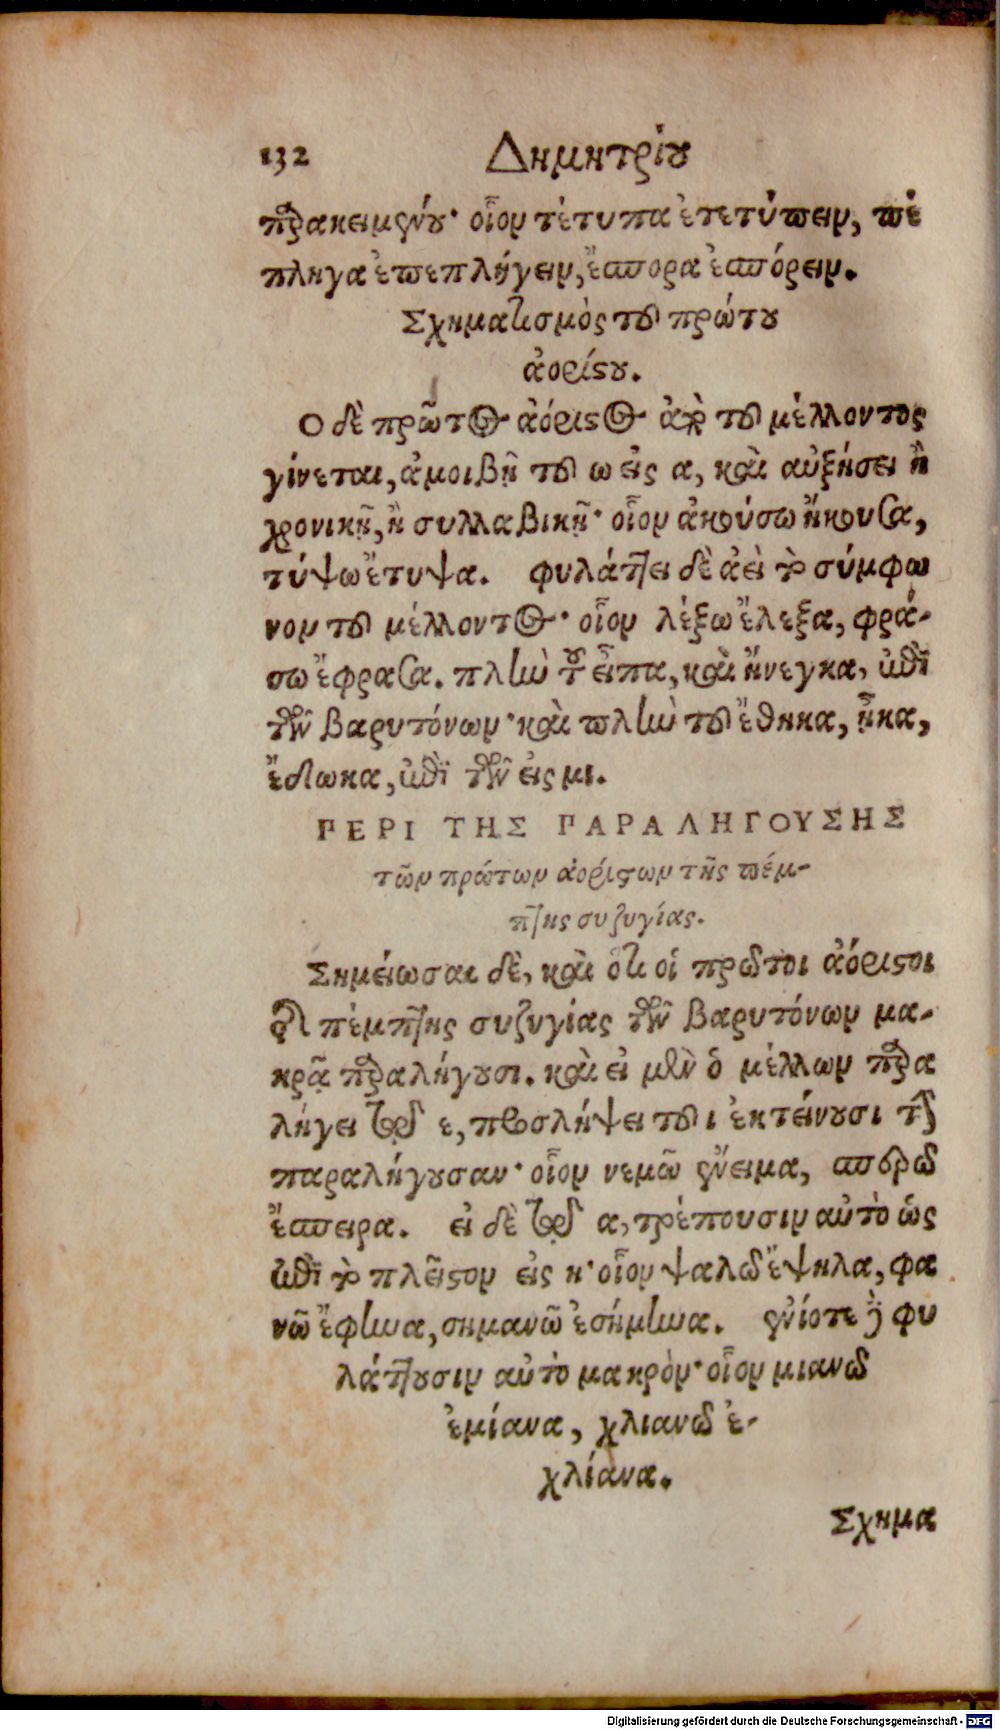 132 Δημητρίου
παρακειμένου· οἷον τέτυπα ἐτετύπειν, πέ
πληγα ἐπεπλήγειν, ἔσπορα ἐσπόρειν.
Σχηματισμὸς τοῦ πρώτου
ἀορίστου.
Ο δὲ πρῶτος ἀόριστος ἀπὸ τοῦ μέλλοντος
γίνεται, ἀμοιβῇ τοῦ ω εἰς α, καὶ αὐξήσει ἢ
χρονικῇ, ἢ συλλαβικῇ· οἷον ἀκούσω ἤκουσα,
τύψω ἔτυψα. φυλάττει δὲ ἀεὶ τὸ σύμφω
νον τοῦ μέλλοντος· οἷον λέξω ἔλεξα, φρά-
σω ἔφρασα. πλὴν τοῦ εἶπα, καὶ ἤνεγκα, ἐπὶ
τῶν βαρυτόνων· καὶ πλὴν τοῦ ἔθηκα, ἧκα,
ἔδωκα, ἐπὶ τῶν εἰς μι.
ΠΕΡΙ ΤΗΣ ΠΑΡΑΛΗΓΟΥΣΗΣ
τῶν πρώτων ἀορίστων τῆς πέμ-
πτης συζυγίας.
Σημείωσαι δὲ, καὶ ὅτι οἱ πρῶτοι ἀόριστοι
τῆς πέμπτης συζυγίας τῶν βαρυτόνων μα-
κρᾷ παραλήγουσι. καὶ εἰ μὲν ὁ μέλλων παρα
λήγει τῷ ε, προσλήψει τοῦ ι ἐκτείνουσι τὴν
παραλήγουσαν· οἷον νεμῶ ἔνειμα, σπερῶ
ἔσπειρα. εἰ δὲ τῷ α, τρέπουσιν αὐτὸ ὡς
ἐπὶ τὸ πλεῖστον εἰς η· οἷον ψαλῶ ἔψηλα, φα
νῶ ἔφηνα, σημανῶ ἐσήμηνα. ἐνίοτε δὲ φυ
λάττουσιν αὐτὸ μακρὸν· οἷον μιανῶ
ἐμίανα, χλιανῶ ἐ-
χλίανα.
Σχημα
Digitalisierung gefördert durch die Deutsche Forschungsgemeinschaft - DFG